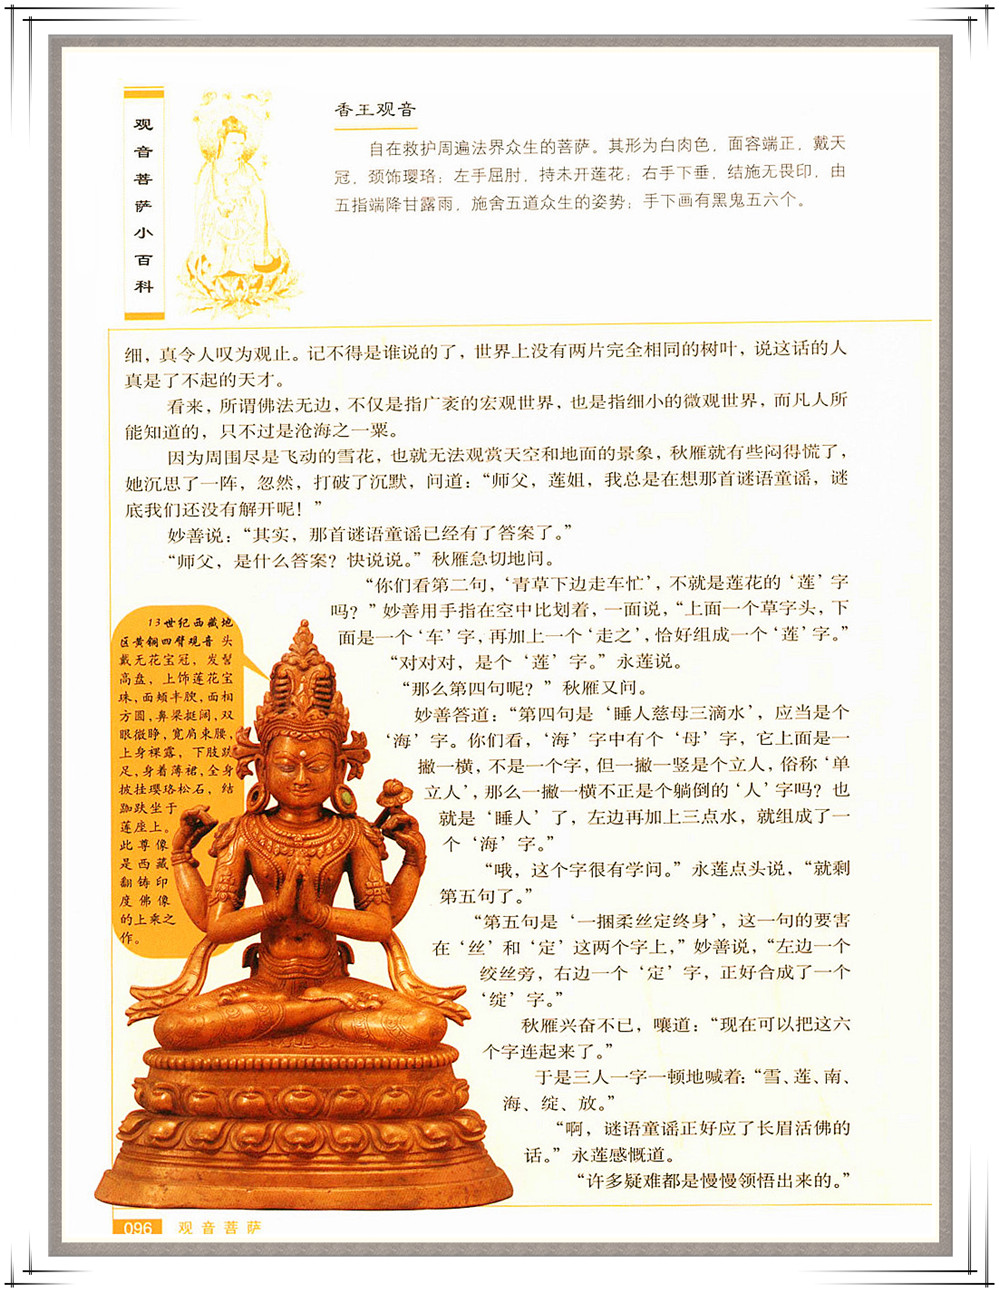 观音菩萨小百科
香王观音
自在救护周遍法界众生的菩萨。其形为白肉色，面容端正，戴天
冠，颈饰璎珞；左手屈肘，持未开莲花；右手下垂，结施无畏印，由
五指端降甘露雨，施舍五道众生的姿势；手下画有黑鬼五六个。
细，真令人叹为观止。记不得是谁说的了，世界上没有两片完全相同的树叶，说这话的人
真是了不起的天才。
看来，所谓佛法无边，不仅是指广袤的宏观世界，也是指细小的微观世界，而凡人所
能知道的，只不过是沧海之一粟。
因为周围尽是飞动的雪花，也就无法观赏天空和地面的景象，秋雁就有些闷得慌了，
她沉思了一阵，忽然，打破了沉默，问道：“师父，莲姐，我总是在想那首谜语童谣，谜
底我们还没有解开呢！”
妙善说：“其实，那首谜语童谣已经有了答案了。”
“师父，是什么答案？快说说。”秋雁急切地问。
“你们看第二句，‘青草下边走车忙’，不就是莲花的‘莲’字
吗？”妙善用手指在空中比划着，一面说，“上面一个草字头，下
面是一个‘车’字，再加上一个‘走之’，恰好组成一个‘莲’字。”
“对对对，是个‘莲’字。”永莲说。
“那么第四句呢？”秋雁又问。
妙善答道：“第四句是‘睡人慈母三滴水’，应当是个
‘海’字。你们看，‘海’字中有个‘母’字，它上面是一
撇一横，不是一个字，但一撇一竖是个立人，俗称‘单
立人’，那么一撇一横不正是个躺倒的‘人’字吗？也
就是‘睡人’了，左边再加上三点水，就组成了一
个‘海’字。”
“哦，这个字很有学问。”永莲点头说，“就剩
第五句了。”
“第五句是‘一捆柔丝定终身’，这一句的要害
在‘丝’和‘定’这两个字上，”妙善说，“左边一个
绞丝旁，右边一个‘定’字，正好合成了一个
‘绽’字。”
秋雁兴奋不已，嚷道：“现在可以把这六
个字连起来了。”
于是三人一字一顿地喊着：“雪、莲、南、
海、绽、放。”
“啊，谜语童谣正好应了长眉活佛的
话。”永莲感慨道。
“许多疑难都是慢慢领悟出来的。”
13世纪西藏地
区黄铜四臂观音 头
戴无花宝冠，发髻
高盘，上饰莲花宝
珠，面颊丰腴，面相
方圆，鼻梁挺阔，双
眼微睁，宽肩束腰，
上身裸露，下肢趺
足，身着薄裙，全身
披挂璎珞松石，结
跏趺坐于
莲座上。
此尊像
是西藏
翻铸印
度佛像
的上乘之
作。
096 观音菩萨